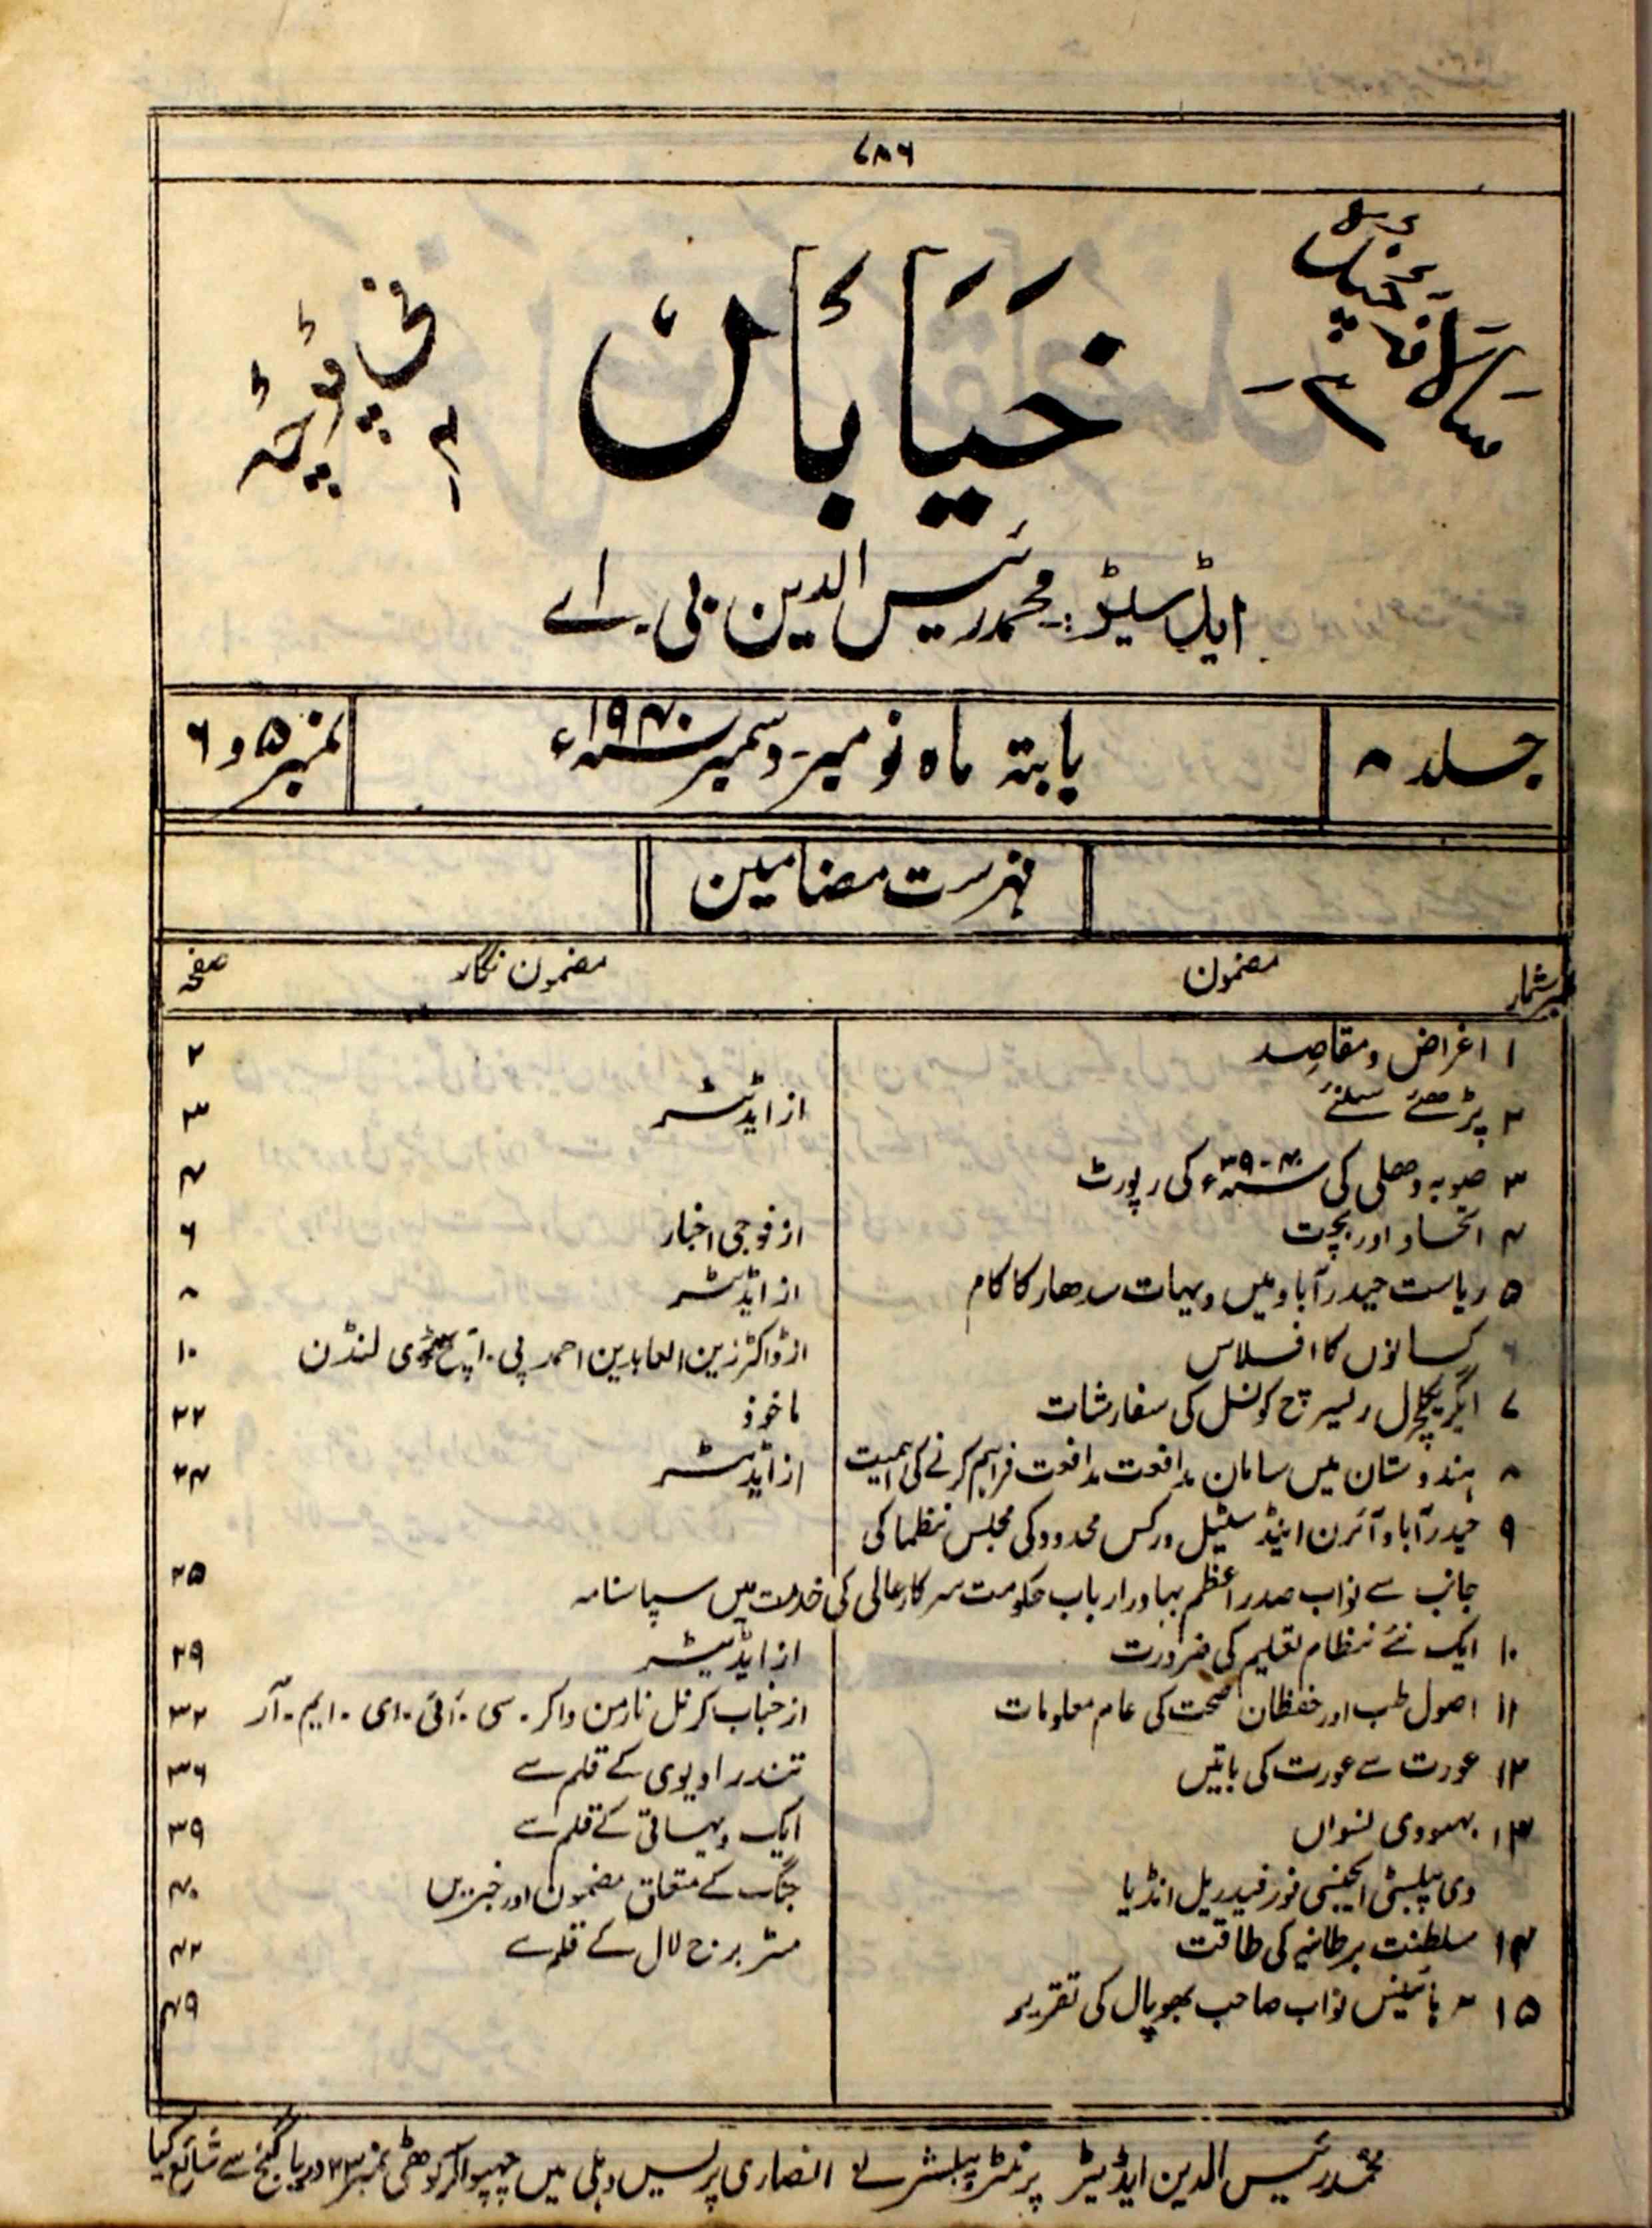 ۷۸۶
سالانہ چندہ
۳
خیابان
فی پرچہ
۴
ایڈیٹر:۔ محمد رئیس الدین بی۔اے
جلد ۸
بابتہ ماہ نومبر۔دسمبر سنہ ۱۹۴۰ء
نمبر ۵ و ۶
فہرست مضامین
نمبر شمار مضمون مضمون نگار صفحہ
۱ اغراض و مقاصد ۲
۲ پڑھئے سنئے از ایڈیٹر ۳
۳ صوبہ دھلی کی سنہ ۴۰-۳۹ء کی رپورٹ ۴
۴ اتحاد اور بچت از فوجی اخبار ۶
۵ ریاست حیدرآباد میں دیہات سدھار کا کام از ایڈیٹر ۸
۶ کسانوں کا افلاس از ڈاکٹر زین العابدین احمد پی۔ایچ ڈی لنڈن ۱۰
۷ ایگریکلچرل ریسرچ کونسل کی سفارشات ماخوذ ۲۲
۸ ہندوستان میں سامان مدافعت مدافعت فراہم کرنے کی اہمیت از ایڈیٹر ۲۴
۹ حیدرآباد آئرن اینڈ سٹیل ورکس محدود کی مجلس نظما کی
جانب سے نواب صدر اعظم بہادر ارباب حکومت سرکار عالی کی خدمت میں سپاسنامہ ۲۵
۱۰ ایک نئے نظام تعلیم کی ضرورت از ایڈیٹر ۲۹
۱۱ اصول طب اور حفظان صحت کی عام معلومات از جناب کرنل نارمن واکر۔ سی۔آئی۔ای۔ایم۔آر ۳۲
۱۲ عورت سے عورت کی باتیں تندرا دیوی کے قلم سے ۳۶
۱۳ بہبودی نسواں ایک دیہاتی کے قلم سے ۳۹
دی پبلسٹی ایجنسی فور فیڈریل انڈیا جنگ کے متعلق مضمون اور خبریں ۴۰
۱۴ سلطنت برطانیہ کی طاقت مسٹر برج لال کے قلم سے ۴۲
۱۵ ہز ہائینس نواب صاحب بھوپال کی تقریر ۴۹
محمد رئیس الدین ایڈیٹر پرنٹر پبلشر نے انصاری پریس دہلی میں چھپوا کر کوٹھی نمبر ۲۳ دریا گنج سے شائع کیا